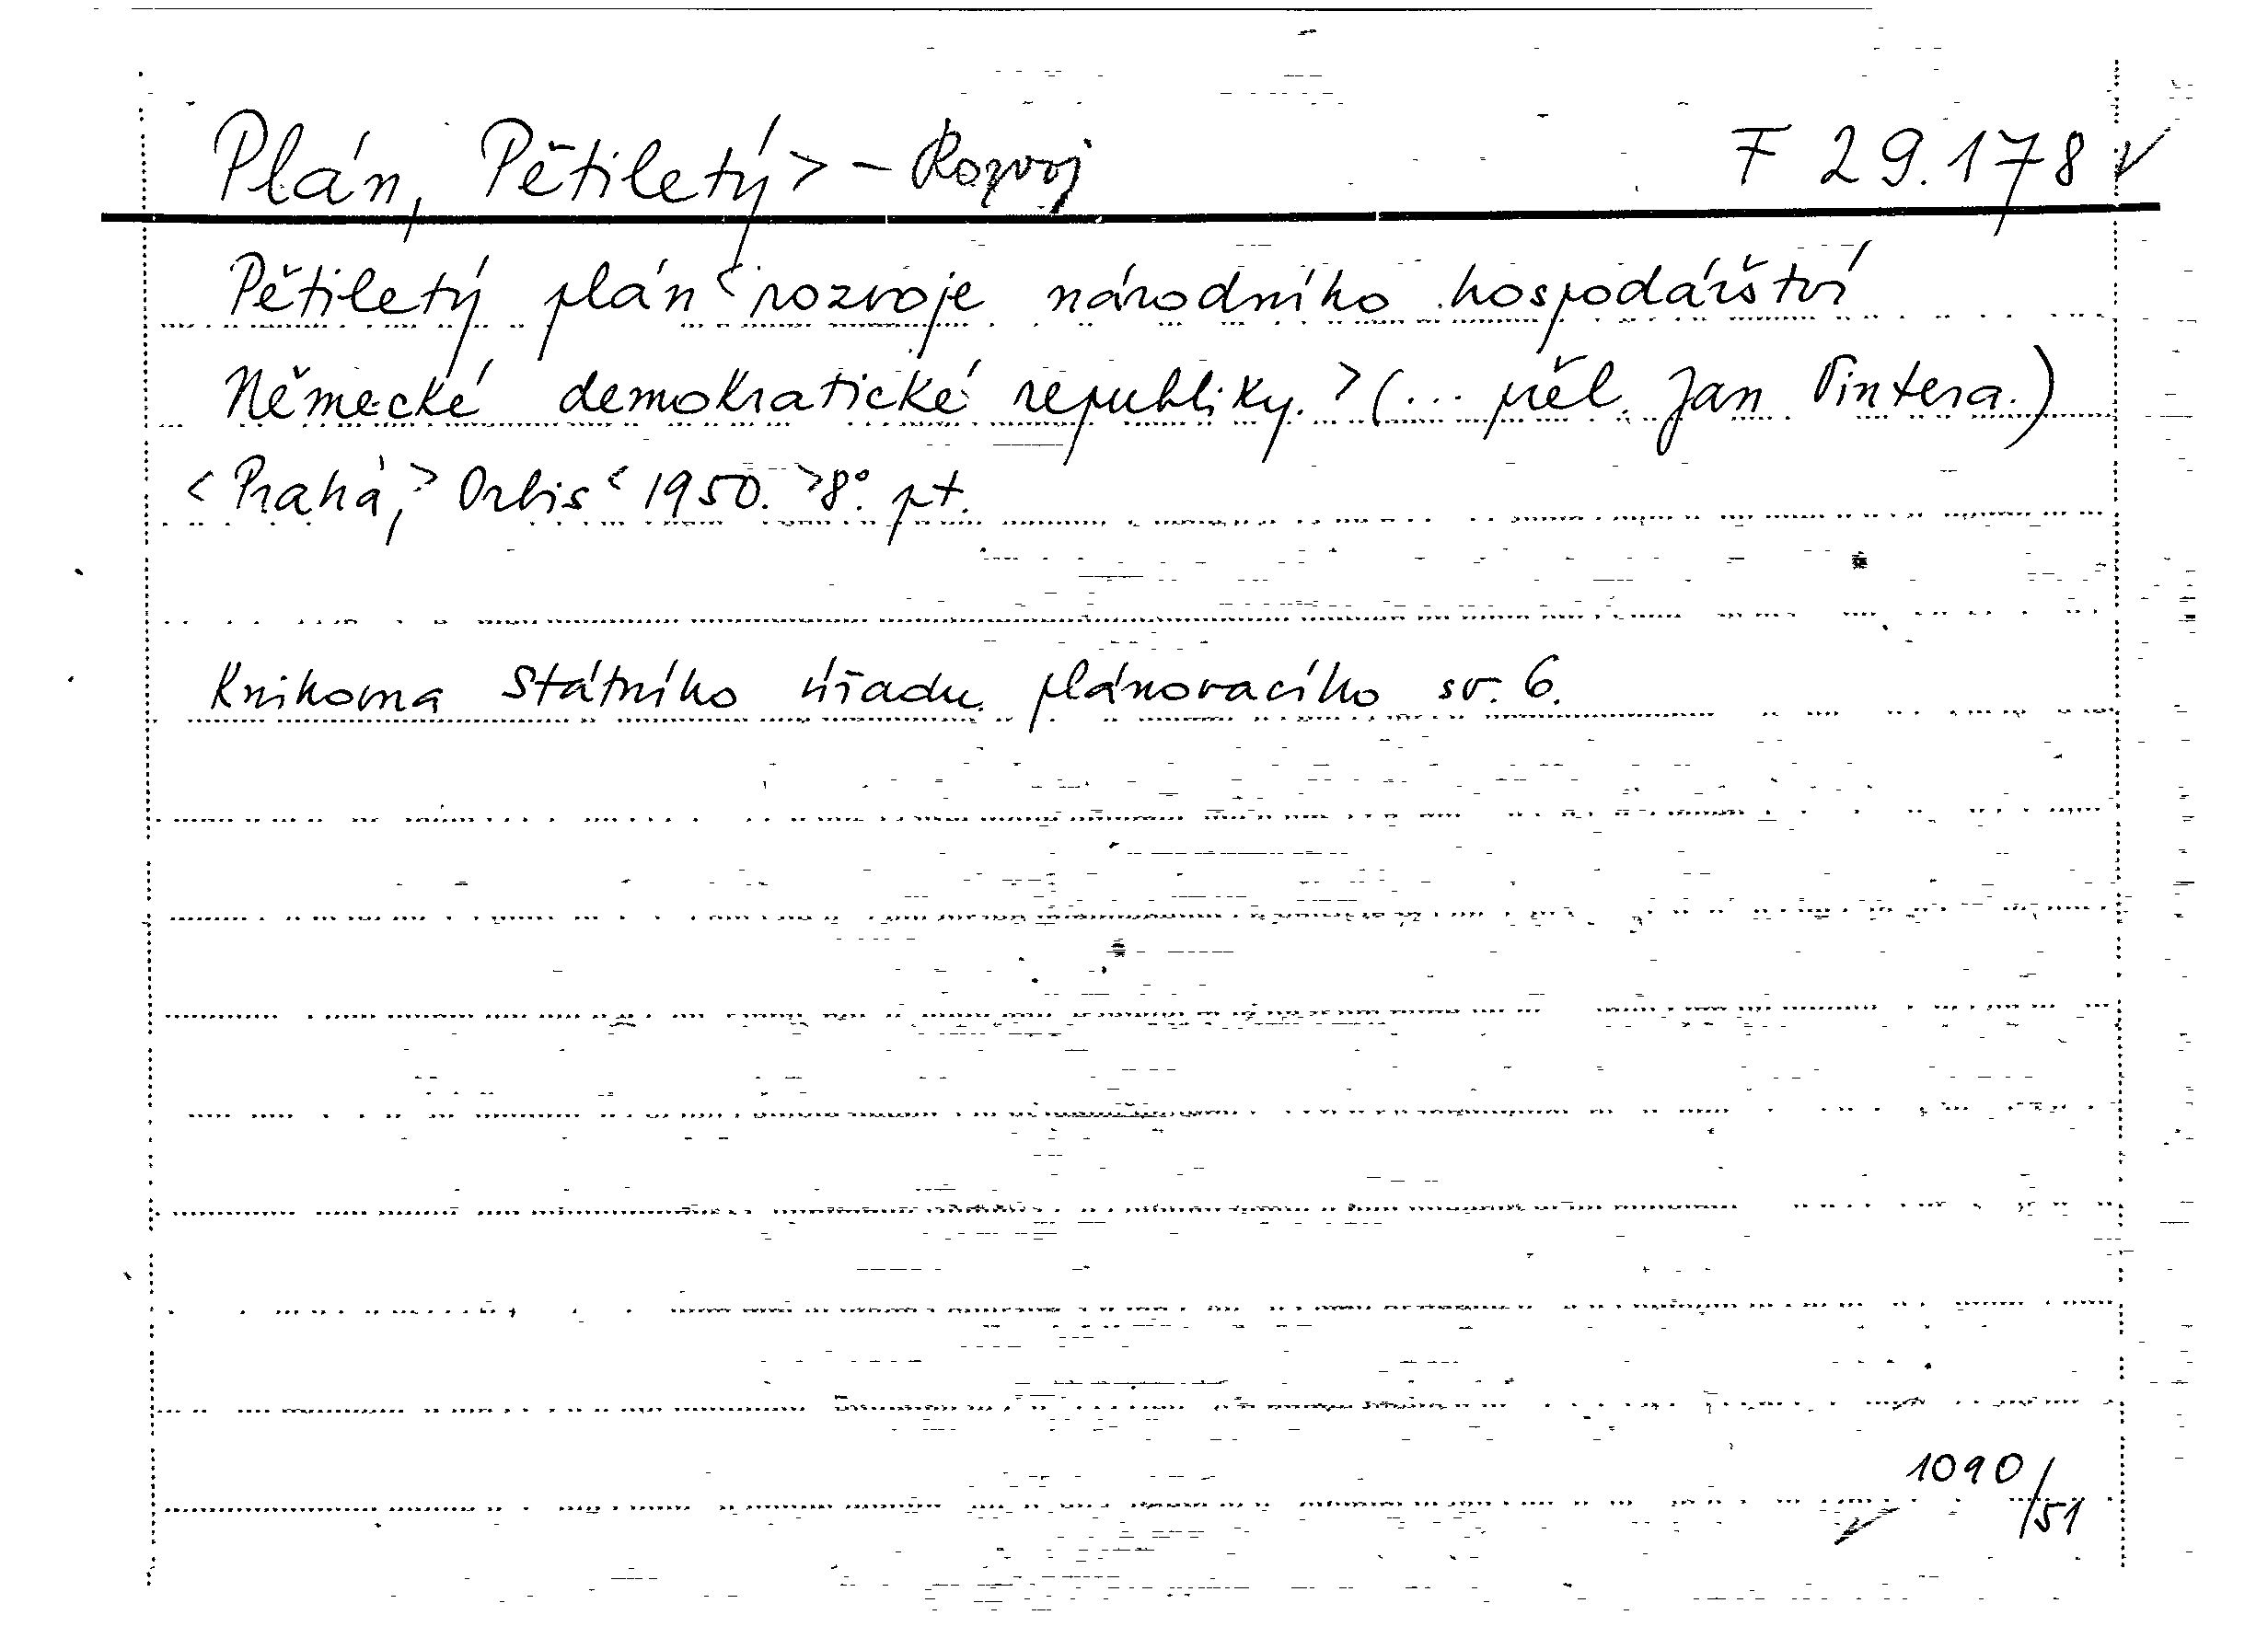 Plán, Pětiletý > - Rozvoj F 29.178
Pětiletý plán < rozvoje národního hospodářství
Německé demokratické republiky. > (... přel. Jan Pintera.)
< Praha, > Orbis < 1950. > 8°. pt.
Knihovna Státního úřadu plánovacího sv. 6.
1090/51